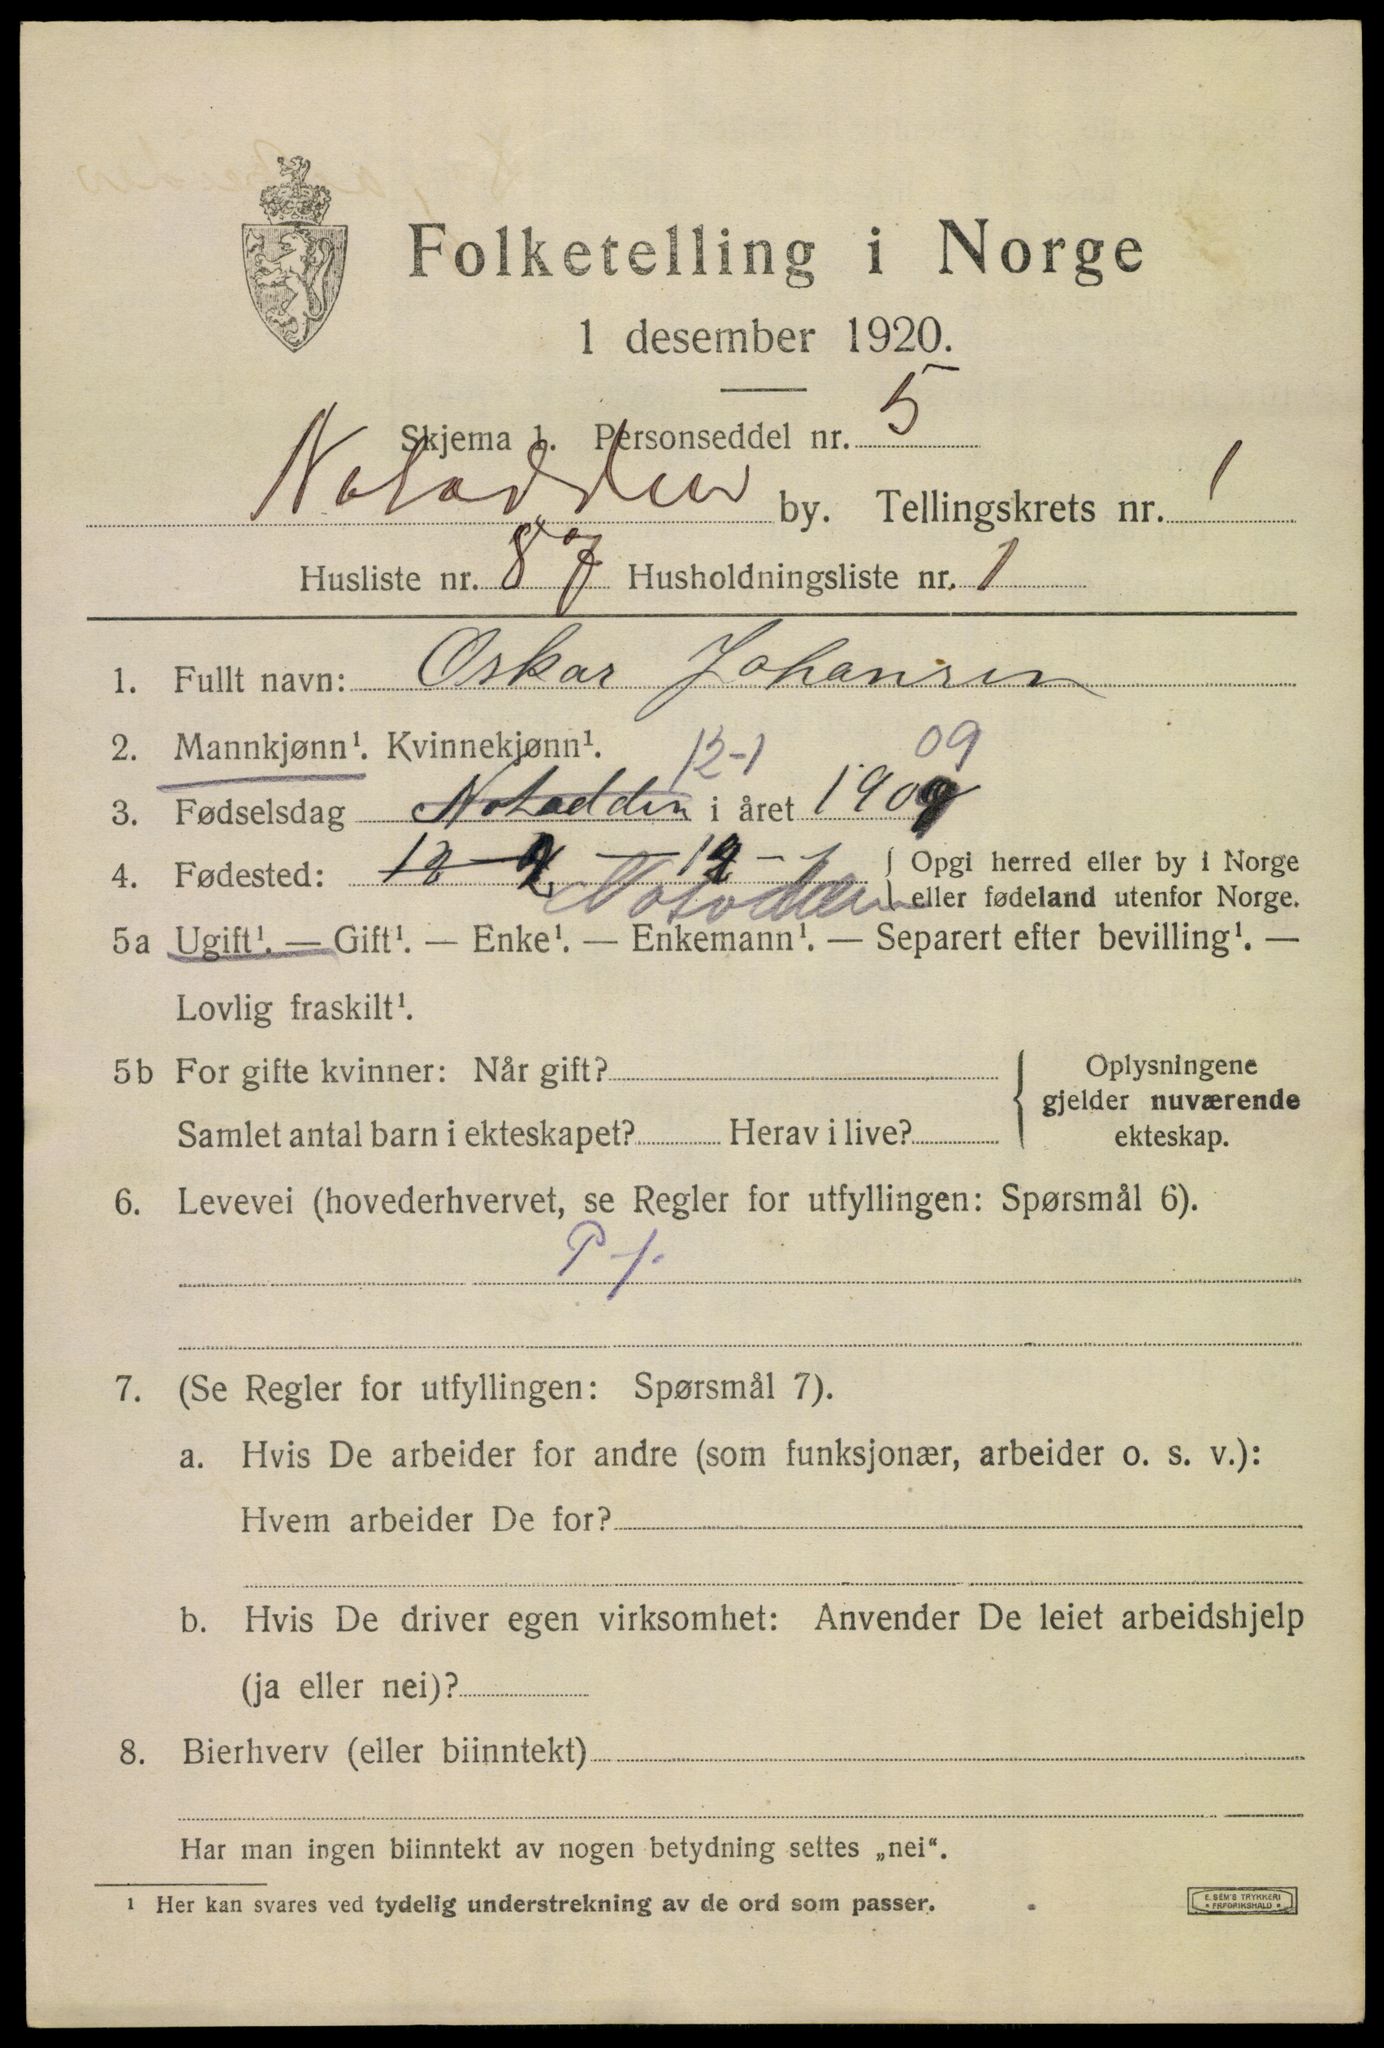 Folketelling i Norge
1 desember 1920.
Skjema 1. Personseddel nr. 5
Notodden by. Tellingskrets nr. 1
Husliste nr. 87 Husholdningsliste nr. 1
1. Fullt navn: Oskar Johansen
2. Mannkjønn¹. Kvinnekjønn¹. 12-1 09
3. Fødselsdag Notodden i året 1909
4. Fødested: Notodden { Opgi herred eller by i Norge
eller fødeland utenfor Norge.
5a Ugift¹. — Gift¹. — Enke¹. — Enkemann¹. — Separert efter bevilling¹. —
Lovlig fraskilt¹.
5b For gifte kvinner: Når gift?
Samlet antal barn i ekteskapet? Herav i live?
Oplysningene
gjelder nuværende
ekteskap.
6. Levevei (hovederhvervet, se Regler for utfyllingen: Spørsmål 6).
7. (Se Regler for utfyllingen: Spørsmål 7).
a. Hvis De arbeider for andre (som funksjonær, arbeider o. s. v.):
Hvem arbeider De for?
b. Hvis De driver egen virksomhet: Anvender De leiet arbeidshjelp
(ja eller nei)?
8. Bierhverv (eller biinntekt)
Har man ingen biinntekt av nogen betydning settes „nei“.
¹ Her kan svares ved tydelig understrekning av de ord som passer.
E. SEM'S TRYKKERI
* FREDRIKSHALD *